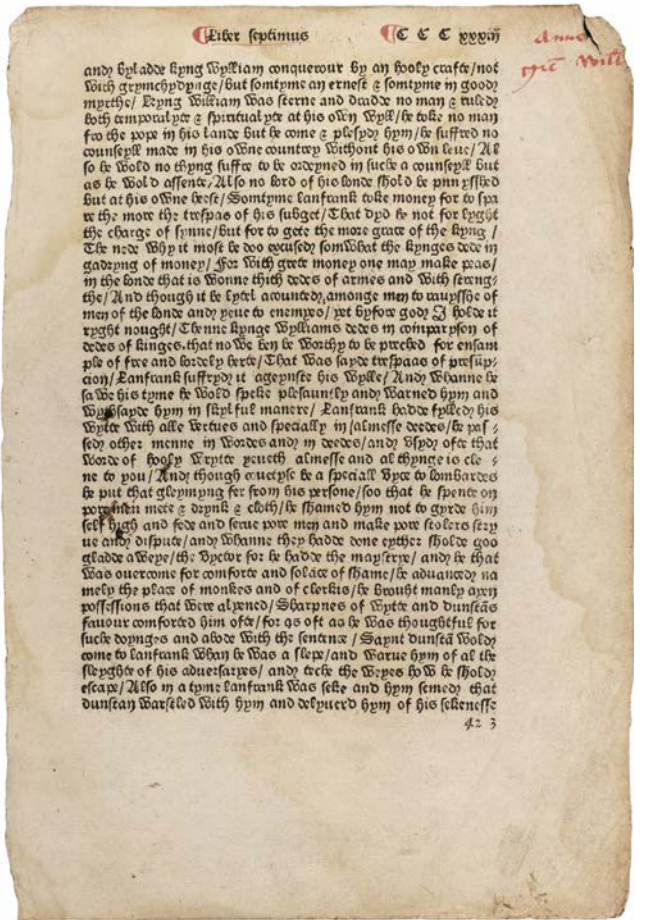 Liber septimus C C C xxxiij
Anno
gre Will
and byladde kyng Wylliam conquerour by an hooly crafte/not
with grymchydynge/but somtyme an ernest & somtyme in good
myrthe/ Kyng William was sterne and dradde no man & ruled
both temporalyte & spiritualyte at his owen wyll/he toke no man
fro the pope in his lande but he come & plesyd hym/he suffred no
counseyll made in his owne countrey without his owen leue/Al
so he wold no thyng suffre to be ordeyned in suche a counseyll but
as he wold assente/Also no lord of his londe shold be pnnysshed
but at his owne heest/Somtyme lanfrank toke money for to spa
re the more the trespas of his subget/That dyd he not for lyght
the charge of synne/but for to gete the more grace of the kyng /
The nede why it most be doo excused somwhat the kynges dede in
gadryng of money/ For with grete money one may make peas/
in the londe that is wonne thith dedes of armes and with streng-
the/And though it be lytel acounted amonge men to rauysshe of
men of the londe and yeue to enemyes/yet byfore god I holde it
ryght nought/Thenne kynge Wylliams dedes in comparyson of
dedes of kinges.that nowe ben be worthy to be preched for ensam
ple of free and lordely herte/That was sayde trespaas of presup-
cion/Lanfrank suffryd it ageynste his wylle/And whanne he
sawe his tyme he wold speke plesauntly and warned hym and
wythsayde hym in skylful manere/ Lanfrank hadde fylled his
wytte with alle vertues and specially in/almesse deedes/he pas-
sed other menne in wordes and in deedes/and vsyd ofte that
worde of hooly wrytte yeueth almesse and al thynge is cle -
ne to you/And though couetyse be a speciall vyce to lombardes
he put that gleymyng fer from his persone/soo that he spente on
poremen mete & drynk & cloth/he shamed hym not to gyrde him
self high and fede and serue pore men and make pore scolers stry
ue and dispute/and whanne they hadde done eyther sholde goo
gladde aweye/the vyctor for he hadde the maystrye/ and he that
was ouercome for comforte and solace of shame/he aduanced na
mely the place of monkes and of clerkis/he brouht manly ayen
possessions that were alyened/Sharpnes of wytte and dunstãs
fauour comforted him ofte/for as oft as he was thoughtful for
suche doynges and abode with the sentence/Saynt dunstã wold
come to lanfrank whan he was a slepe/and warue hym of al the
sleyghte of his aduersaryes/ and teche the weyes how he shold
escape/Also in a tyme lanfrank was seke and hym semed that
dunstan warsled with hym and delyuerd hym of his sekenesse
42 3